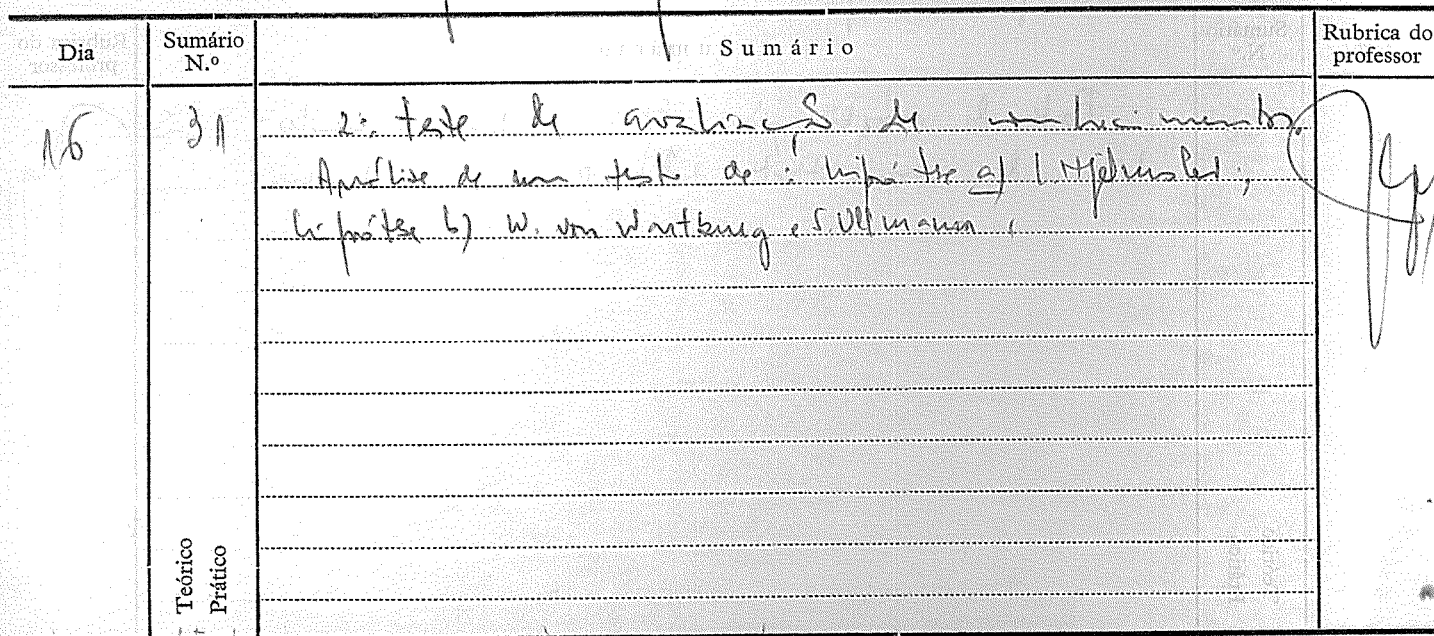 Dia
Sumário
N.º
Sumário
Rubrica do
professor
16
31
2º teste de avaliação de conhecimentos.
Análise de um texto de: hipótese a) L. Hjelmslev;
hipótese b) W. von Wartburg e S. Ullmann.
Teórico
Prático